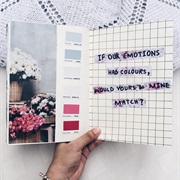 IF OUR EMOTIONS
HAD COLOURS,
WOULD YOURS & MINE
MATCH?